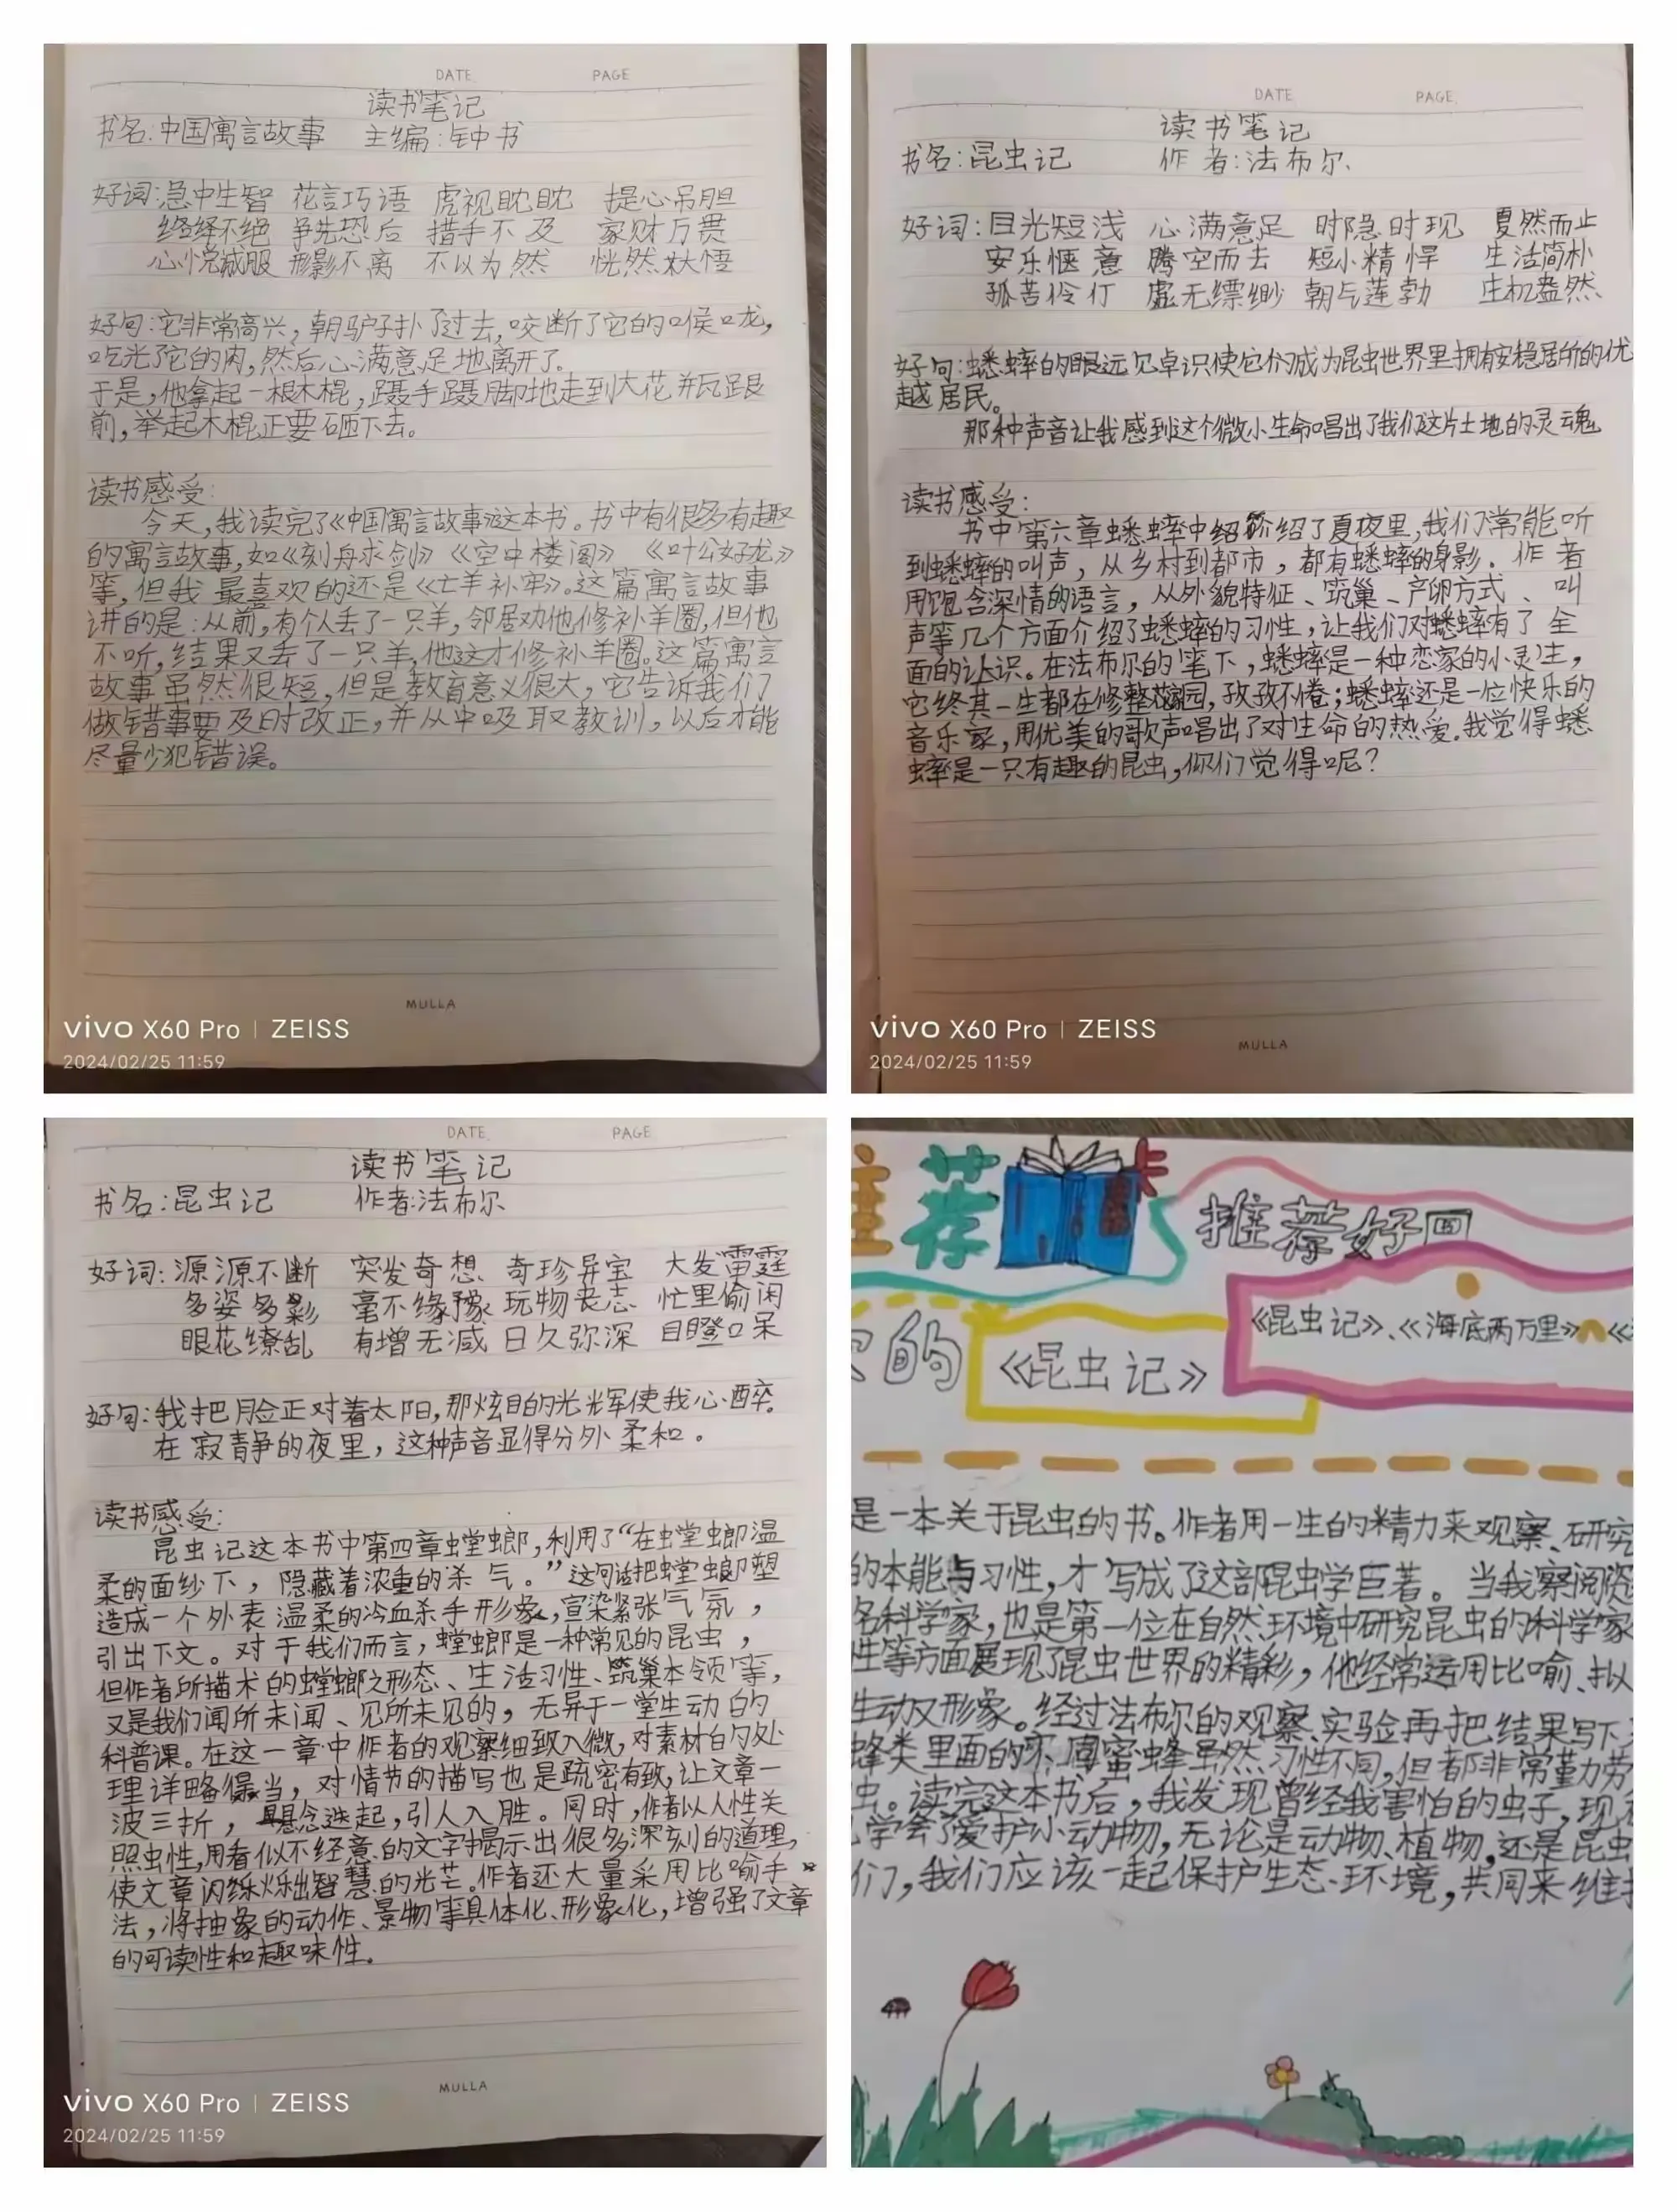 DATE. PAGE
读书笔记
书名:中国寓言故事 主编:钟书
好词:急中生智 花言巧语 虎视眈眈 提心吊胆
络绎不绝 争先恐后 措手不及 家财万贯
心悦诚服 形影不离 不以为然 恍然大悟
好句:它非常高兴,朝驴子扑了过去,咬断了它的喉咙,
吃光了它的肉,然后心满意足地离开了。
于是,他拿起一根木棍,蹑手蹑脚地走到大花瓶跟
前,举起木棍正要砸下去。
读书感受:
今天,我读完了《中国寓言故事》这本书。书中有很多有趣
的寓言故事,如《刻舟求剑》《空中楼阁》《叶公好龙》
等,但我最喜欢的还是《亡羊补牢》。这篇寓言故事
讲的是:从前,有个人丢了一只羊,邻居劝他修补羊圈,但他
不听,结果又丢了一只羊,他这才修补羊圈。这篇寓言
故事虽然很短,但是教育意义很大,它告诉我们
做错事要及时改正,并从中吸取教训,以后才能
尽量少犯错误。
MULLA
vivo X60 Pro | ZEISS
2024/02/25 11:59
DATE PAGE.
读书笔记
书名:昆虫记 作者:法布尔.
好词:目光短浅 心满意足 时隐时现 戛然而止
安乐惬意 腾空而去 短小精悍 生活简朴
孤苦伶仃 虚无缥缈 朝气蓬勃 生机盎然
好句:蟋蟀的眼远见卓识使它们成为昆虫世界里拥有安稳居所的优
越居民。
那种声音让我感到这个微小生命唱出了我们这片土地的灵魂
读书感受:
书中第六章蟋蟀中绍介绍了夏夜里,我们常能听
到蟋蟀的叫声,从乡村到都市,都有蟋蟀的身影.作者
用饱含深情的语言,从外貌特征、筑巢、产卵方式、叫
声等几个方面介绍了蟋蟀的习性,让我们对蟋蟀有了全
面的认识。在法布尔的笔下,蟋蟀是一种恋家的小灵生,
它终其一生都在修整家园,孜孜不倦;蟋蟀还是一位快乐的
音乐家,用优美的歌声唱出了对生命的热爱.我觉得蟋
蟀是一只有趣的昆虫,你们觉得呢?
MULLA
vivo X60 Pro | ZEISS
2024/02/25 11:59
DATE. PAGE
读书笔记
书名:昆虫记 作者:法布尔
好词:源源不断 突发奇想 奇珍异宝 大发雷霆
多姿多彩 毫不缘豫 玩物丧志 忙里偷闲
眼花缭乱 有增无减 日久弥深 目瞪口呆
好句:我把脸正对着太阳,那炫目的光辉使我心醉.
在寂静的夜里,这种声音显得分外柔和。
读书感受:
昆虫记这本书中第四章螳螂,利用了“在螳螂温
柔的面纱下,隐藏着浓重的杀气。”这句话把螳螂塑
造成一个外表温柔的冷血杀手形象,宣染紧张气氛,
引出下文。对于我们而言,螳螂是一种常见的昆虫,
但作者所描术的螳螂之形态、生活习性、筑巢本领等,
又是我们闻所未闻、见所未见的,无异于一堂生动的
科普课。在这一章中作者的观察细致入微,对素材的处
理详略得当,对情节的描写也是疏密有致,让文章一
波三折,悬念迭起,引人入胜。同时,作者以人性关
照虫性,用看似不经意的文字揭示出很多深刻的道理,
使文章闪烁出智慧的光芒.作者还大量采用比喻手
法,将抽象的动作、景物等具体化、形象化,增强了文章
的可读性和趣味性.
MULLA
vivo X60 Pro | ZEISS
2024/02/25 11:59
荐 卡
推荐好
的 《昆虫记》
《昆虫记》、《海底两万里》
是一本关于昆虫的书。作者用一生的精力来观察、研究
的本能与习性,才写成了这部昆虫学巨著。当我察阅资
名科学家,也是第一位在自然环境中研究昆虫的科学家
性等方面展现了昆虫世界的精彩,他经常运用比喻、拟
生动又形象。经过法布尔的观察、实验再把结果写下
蜂类里面的 蜜蜂虽然习性不同,但都非常勤劳
虫。读完这本书后,我发现曾经我害怕的虫子,现
学会了爱护小动物,无论是动物、植物,还是昆虫
们,我们应该一起保护生态环境,共同来维